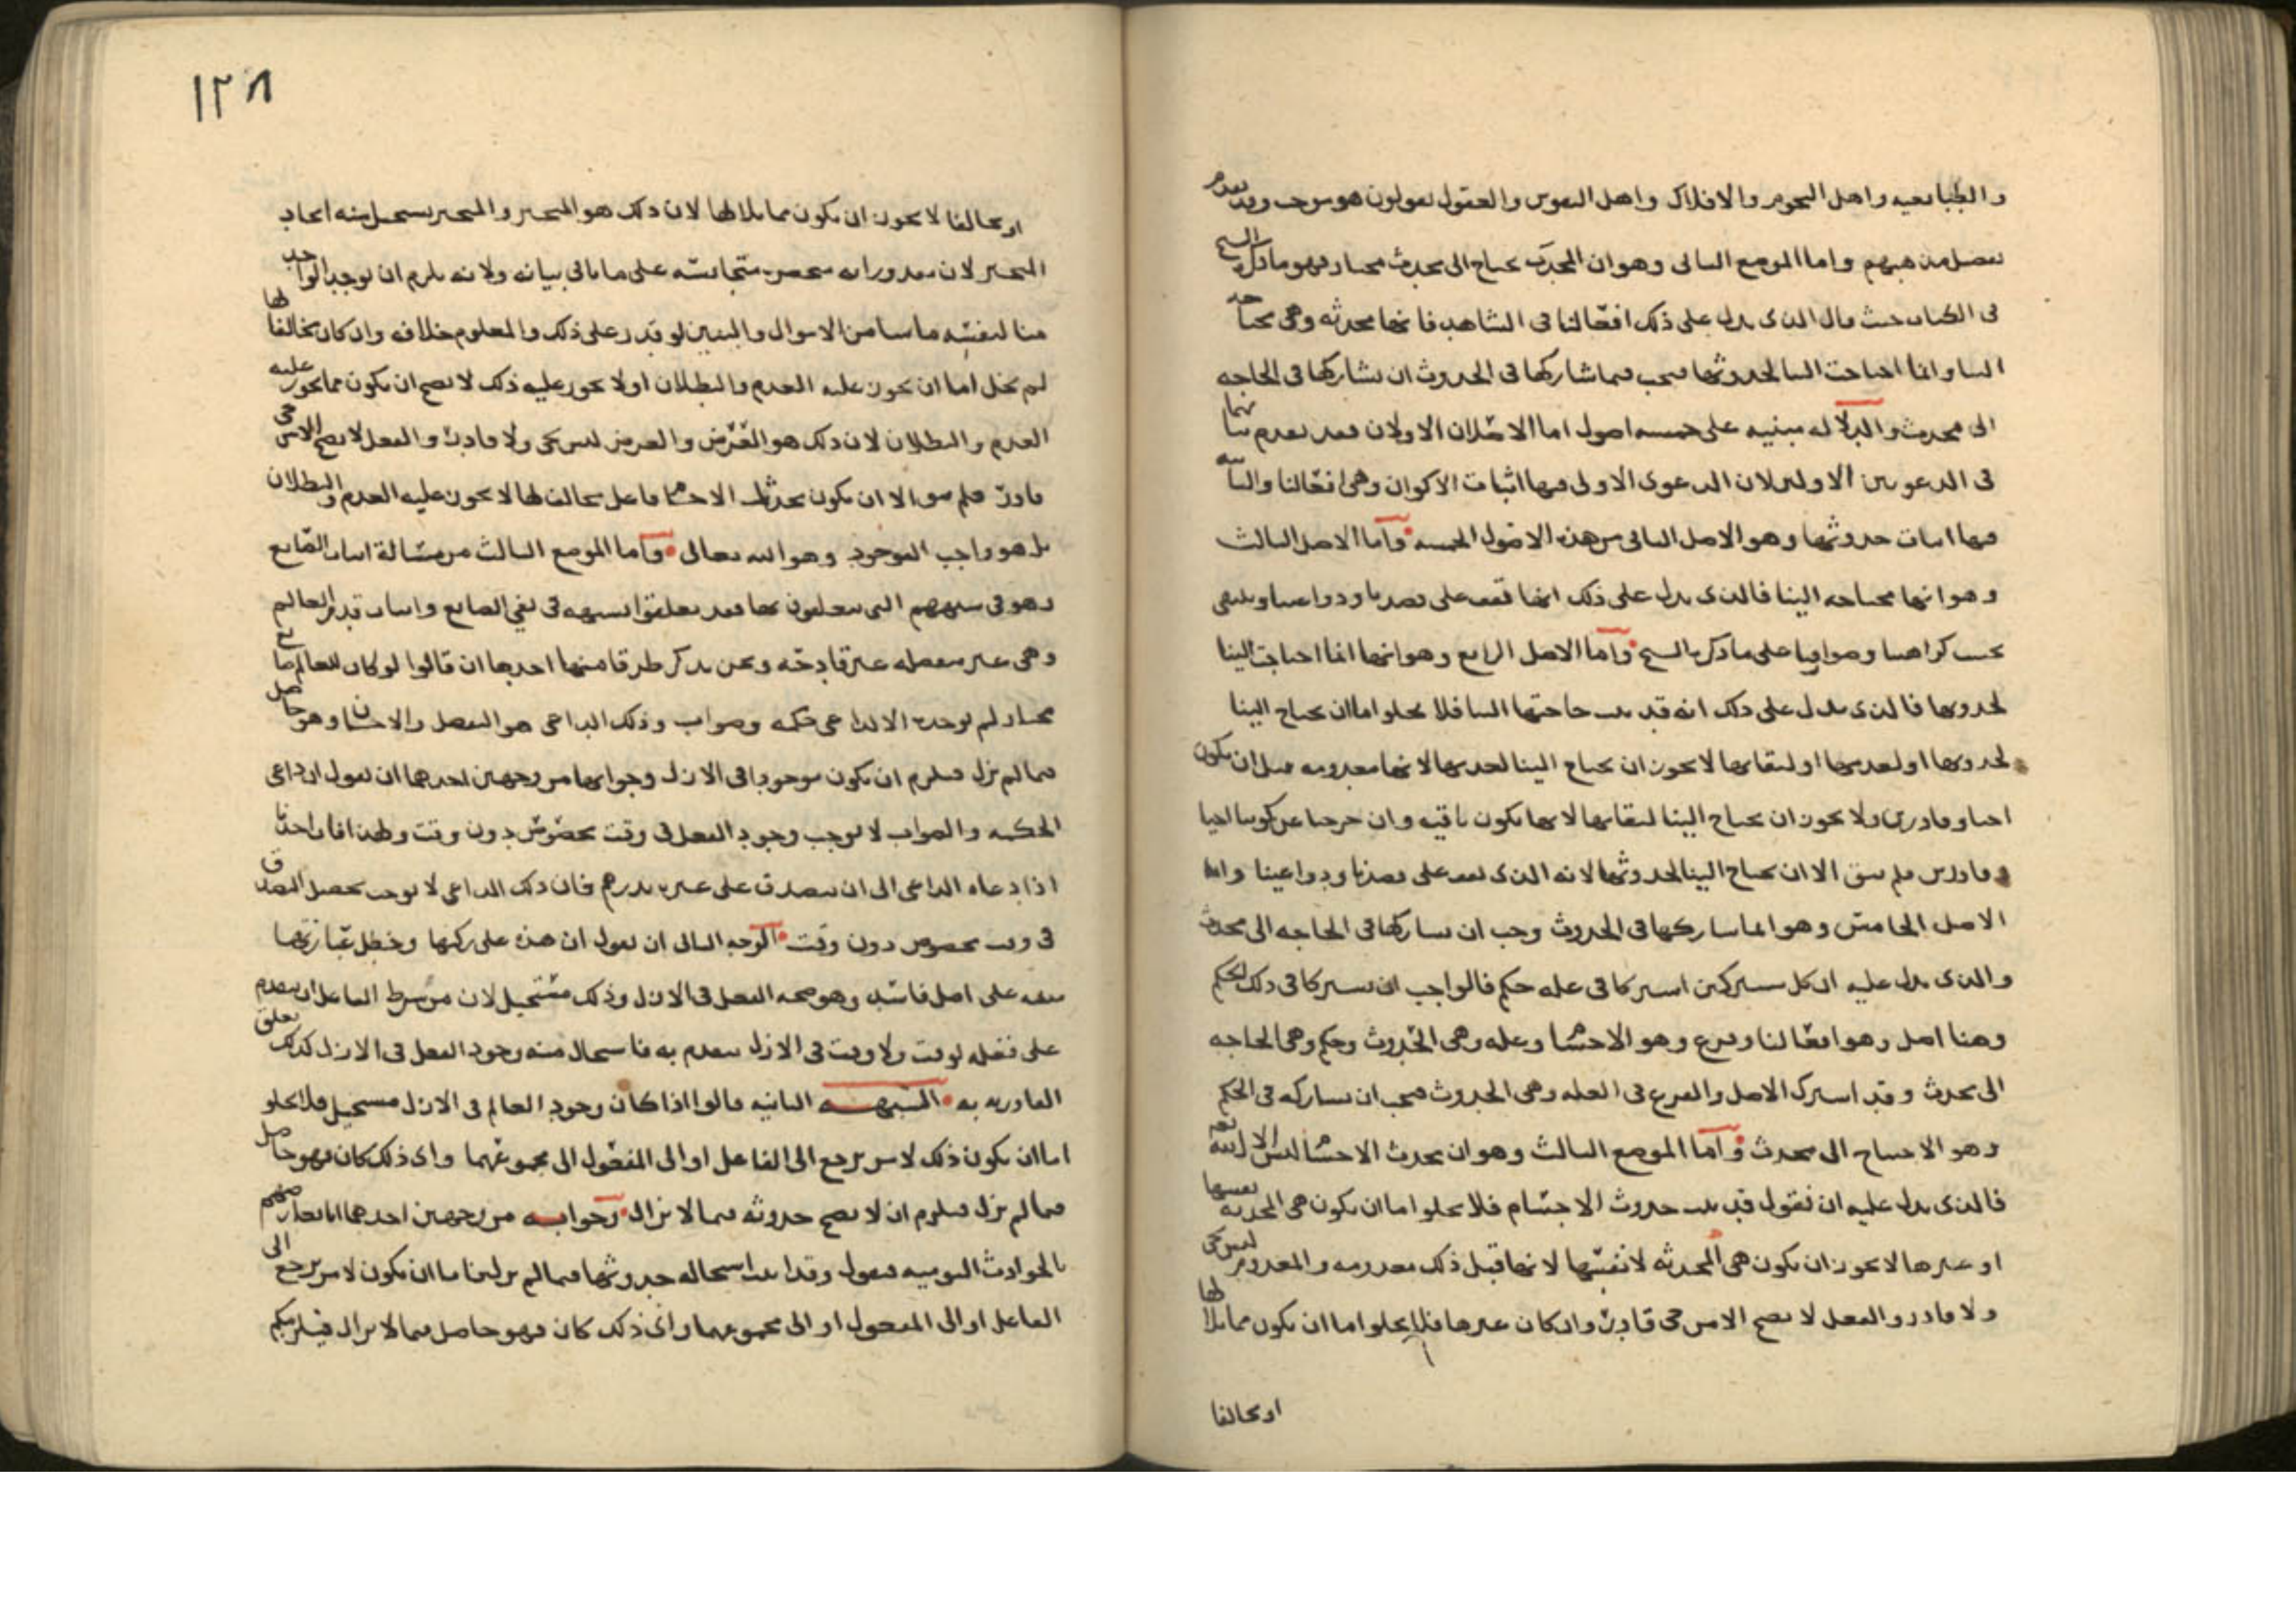 والطبايعيه واهل النجوم والافلاك واهل النفوس والعقول يقولون هو موجب وقد تقدم
تفصيل مذهبهم واما الموضع الثاني وهو ان المحدث يحتاج الى محدث مختار فهو ما ذكره الشيخ
في الكتاب حيث قال الذي يدل على ذلك افعالنا في الشاهد فانها محدثه وهي محتاجه
الينا وانما احتاجت الينا لحدوثها فيجب فيما شاركها في الحدوث ان يشاركها في الحاجه
الى محدث والدلاله مبنيه على خمسه اصول اما الاصلان الاولان فقد تقدم بيانهما
في الدعويين الاوليين لان الدعوى الاولى فيها اثبات الاكوان وهي افعالنا والثانيه
فيها اثبات حدوثها وهو الاصل الثاني من هذه الاصول الخمسه واما الاصل الثالث
وهو انها محتاجه الينا فالذي يدل على ذلك انها تقف على قصدنا ودواعينا وينتفي
بحسب كراهتنا وصوارفنا على ما ذكره الشيخ واما الاصل الرابع وهو انها انما احتاجت الينا
لحدوثها فالذي يدل على ذلك انه قد ثبت حاجتها الينا فلا يخلو اما ان يحتاج الينا
لحدوثها او لعدمها او لبقايها لا يجوز ان يحتاج الينا لعدمها لانها معدومه قبل ان نكون
احيا وقادرين ولا يجوز ان يحتاج الينا لبقايها لانها تكون باقيه وان خرجنا عن كوننا احيا
وقادرين فلم يبق الا ان يحتاج الينا لحدوثها لانه الذي يقف على قصدنا ودواعينا واما
الاصل الخامس وهو انما شاركها في الحدوث وجب ان يشاركها في الحاجه الى محدث
والذي يدل عليه ان كل مشتركين اشتركا في عله حكم فالواجب ان يشتركا في ذلك الحكم
وهنا اصل وهو افعالنا وفرع وهو الاجسام وعله وهي الحدوث وحكم وهي الحاجه
الى محدث وقد اشترك الاصل والفرع في العله وهي الحدوث فيجب ان يشاركه في الحكم
وهو الاحتياج الى محدث واما الموضع الثالث وهو ان محدث الاجسام ليس الا الله تعم
فالذي يدل عليه ان نقول قد ثبت حدوث الاجسام فلا يخلو اما ان تكون هي المحدثه لنفسها
او غيرها لا يجوز ان تكون هي المحدثه لانفسها لانها قبل ذلك معدومه والمعدوم ليس بحي
ولا قادر والفعل لا يصح الا من حي قادر وان كان غيرها فلا يخلو اما ان يكون مماثلا لها
او مخالفا
١٢٨
او مخالفا لا يجوز ان يكون مماثلا لها لان ذلك هو المتحيز والمتحيز يستحيل منه ايجاد
المتحيز لان مقدوراته محصوره متجانسه على ما ياتي بيانه ولانه يلزم ان يوجد الواحد
منا لنفسه ما شا من الاموال والبنين لو قدر على ذلك والمعلوم خلافه وان كان مخالفا لها
لم يخل اما ان يجوز عليه العدم والبطلان او لا يجوز عليه ذلك لا يصح ان يكون مما يجوز عليه
العدم والبطلان لان ذلك هو العرض والعرض ليس بحي ولا قادر والفعل لا يصح الا من حي
قادر فلم يبق الا ان يكون محدث الاجسام فاعل مخالف لها لا يجوز عليه العدم والبطلان
بل هو واجب الوجود وهو الله تعالى واما الموضع الثالث من مسالة اثبات الصانع
وهو في شبههم التي يتعلقون بها فقد تعلقوا بشبهه في نفي الصانع واثبات قدم العالم
وهي غير مفصله غير قادحه ونحن نذكر طرقا منها احدها ان قالوا لو كان للعالم صانع
مختار لم يوجده الا لداعي حكمه وصواب وذلك الداعي هو التفضل والاحسان وهو حاصل
فيما لم يزل فيلزم ان يكون موجودا في الازل وجوابها من وجهين احدهما ان نقول ان داعي
الحكمه والصواب لا يوجب وجود الفعل في وقت مخصوص دون وقت ولهذا فان احدنا
اذا دعاه الداعي الى ان يتصدق على غيره بدرهم فان ذلك الداعي لا يوجب تحصيل التصدق
في وقت مخصوص دون وقت الوجه الثاني ان نقول ان هذه على ركتها وخطل عبارتها
مبنيه على اصل فاسد وهو صحه الفعل في الازل وذلك مستحيل لان من شرط الفاعل ان يتقدم
على فعله لوقت ولا وقت في الازل يتقدم به فاستحال منه وجود الفعل في الازل كذلك تعلق
القادريه به الشبهه الثانيه قالوا اذا كان وجود العالم في الازل مستحيل فلا يخلو
اما ان يكون ذلك لامر يرجع الى الفاعل او الى المفعول الى مجموعهما واي ذلك كان فهو حاصل
فيما لم يزل فيلزم ان لا يصح حدوثه فيما لا يزال وجوابه من وجهين احدهما انا نعارضهم
بالحوادث اليوميه فنقول وقد ثبت استحاله حدوثها فيما لم يزل فاما ان يكون لامر يرجع الى
الفاعل او الى المفعول او الى مجموعهما واي ذلك كان فهو حاصل فيما لا يزال فيلزمكم